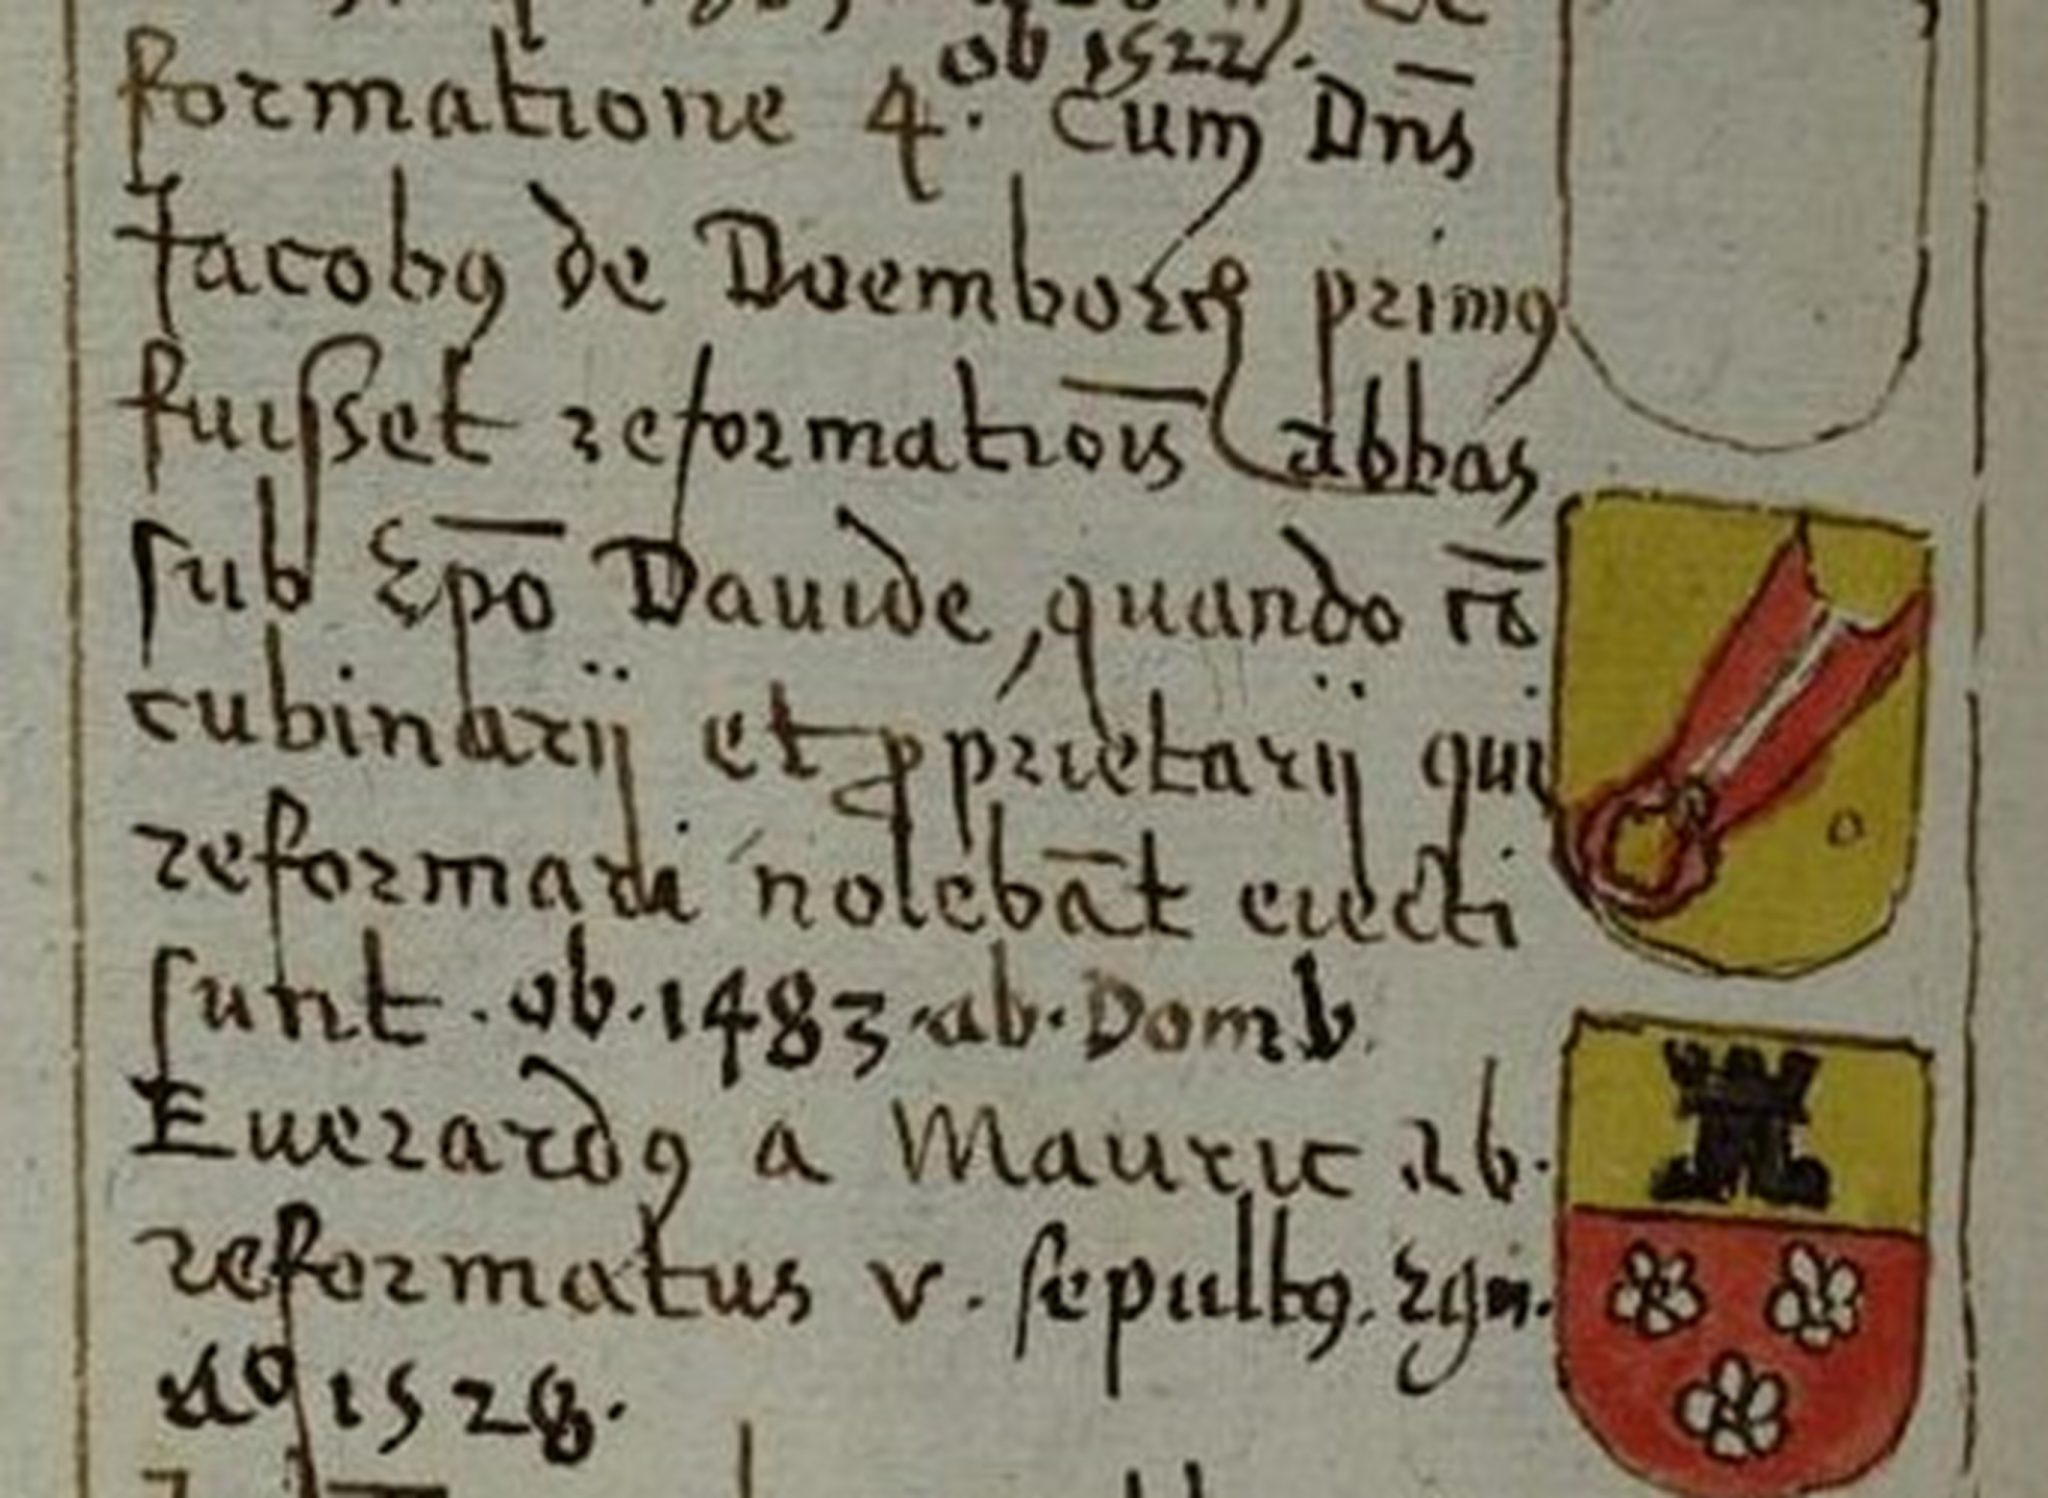 ob 1522.
formatione 4. Cum Dns̄
Jacobꝯ de Doemborch primꝯ
fuisset reformatiōis abbas
sub Epō Dauide, quando cō
cubinarij et ꝓprietarij qui
reformari nolebāt eiecti
sunt. ob. 1483. ab. Domb.
Euerardꝯ a Mauric ab.
reformatus v. sepultꝯ.
Aº 1528.